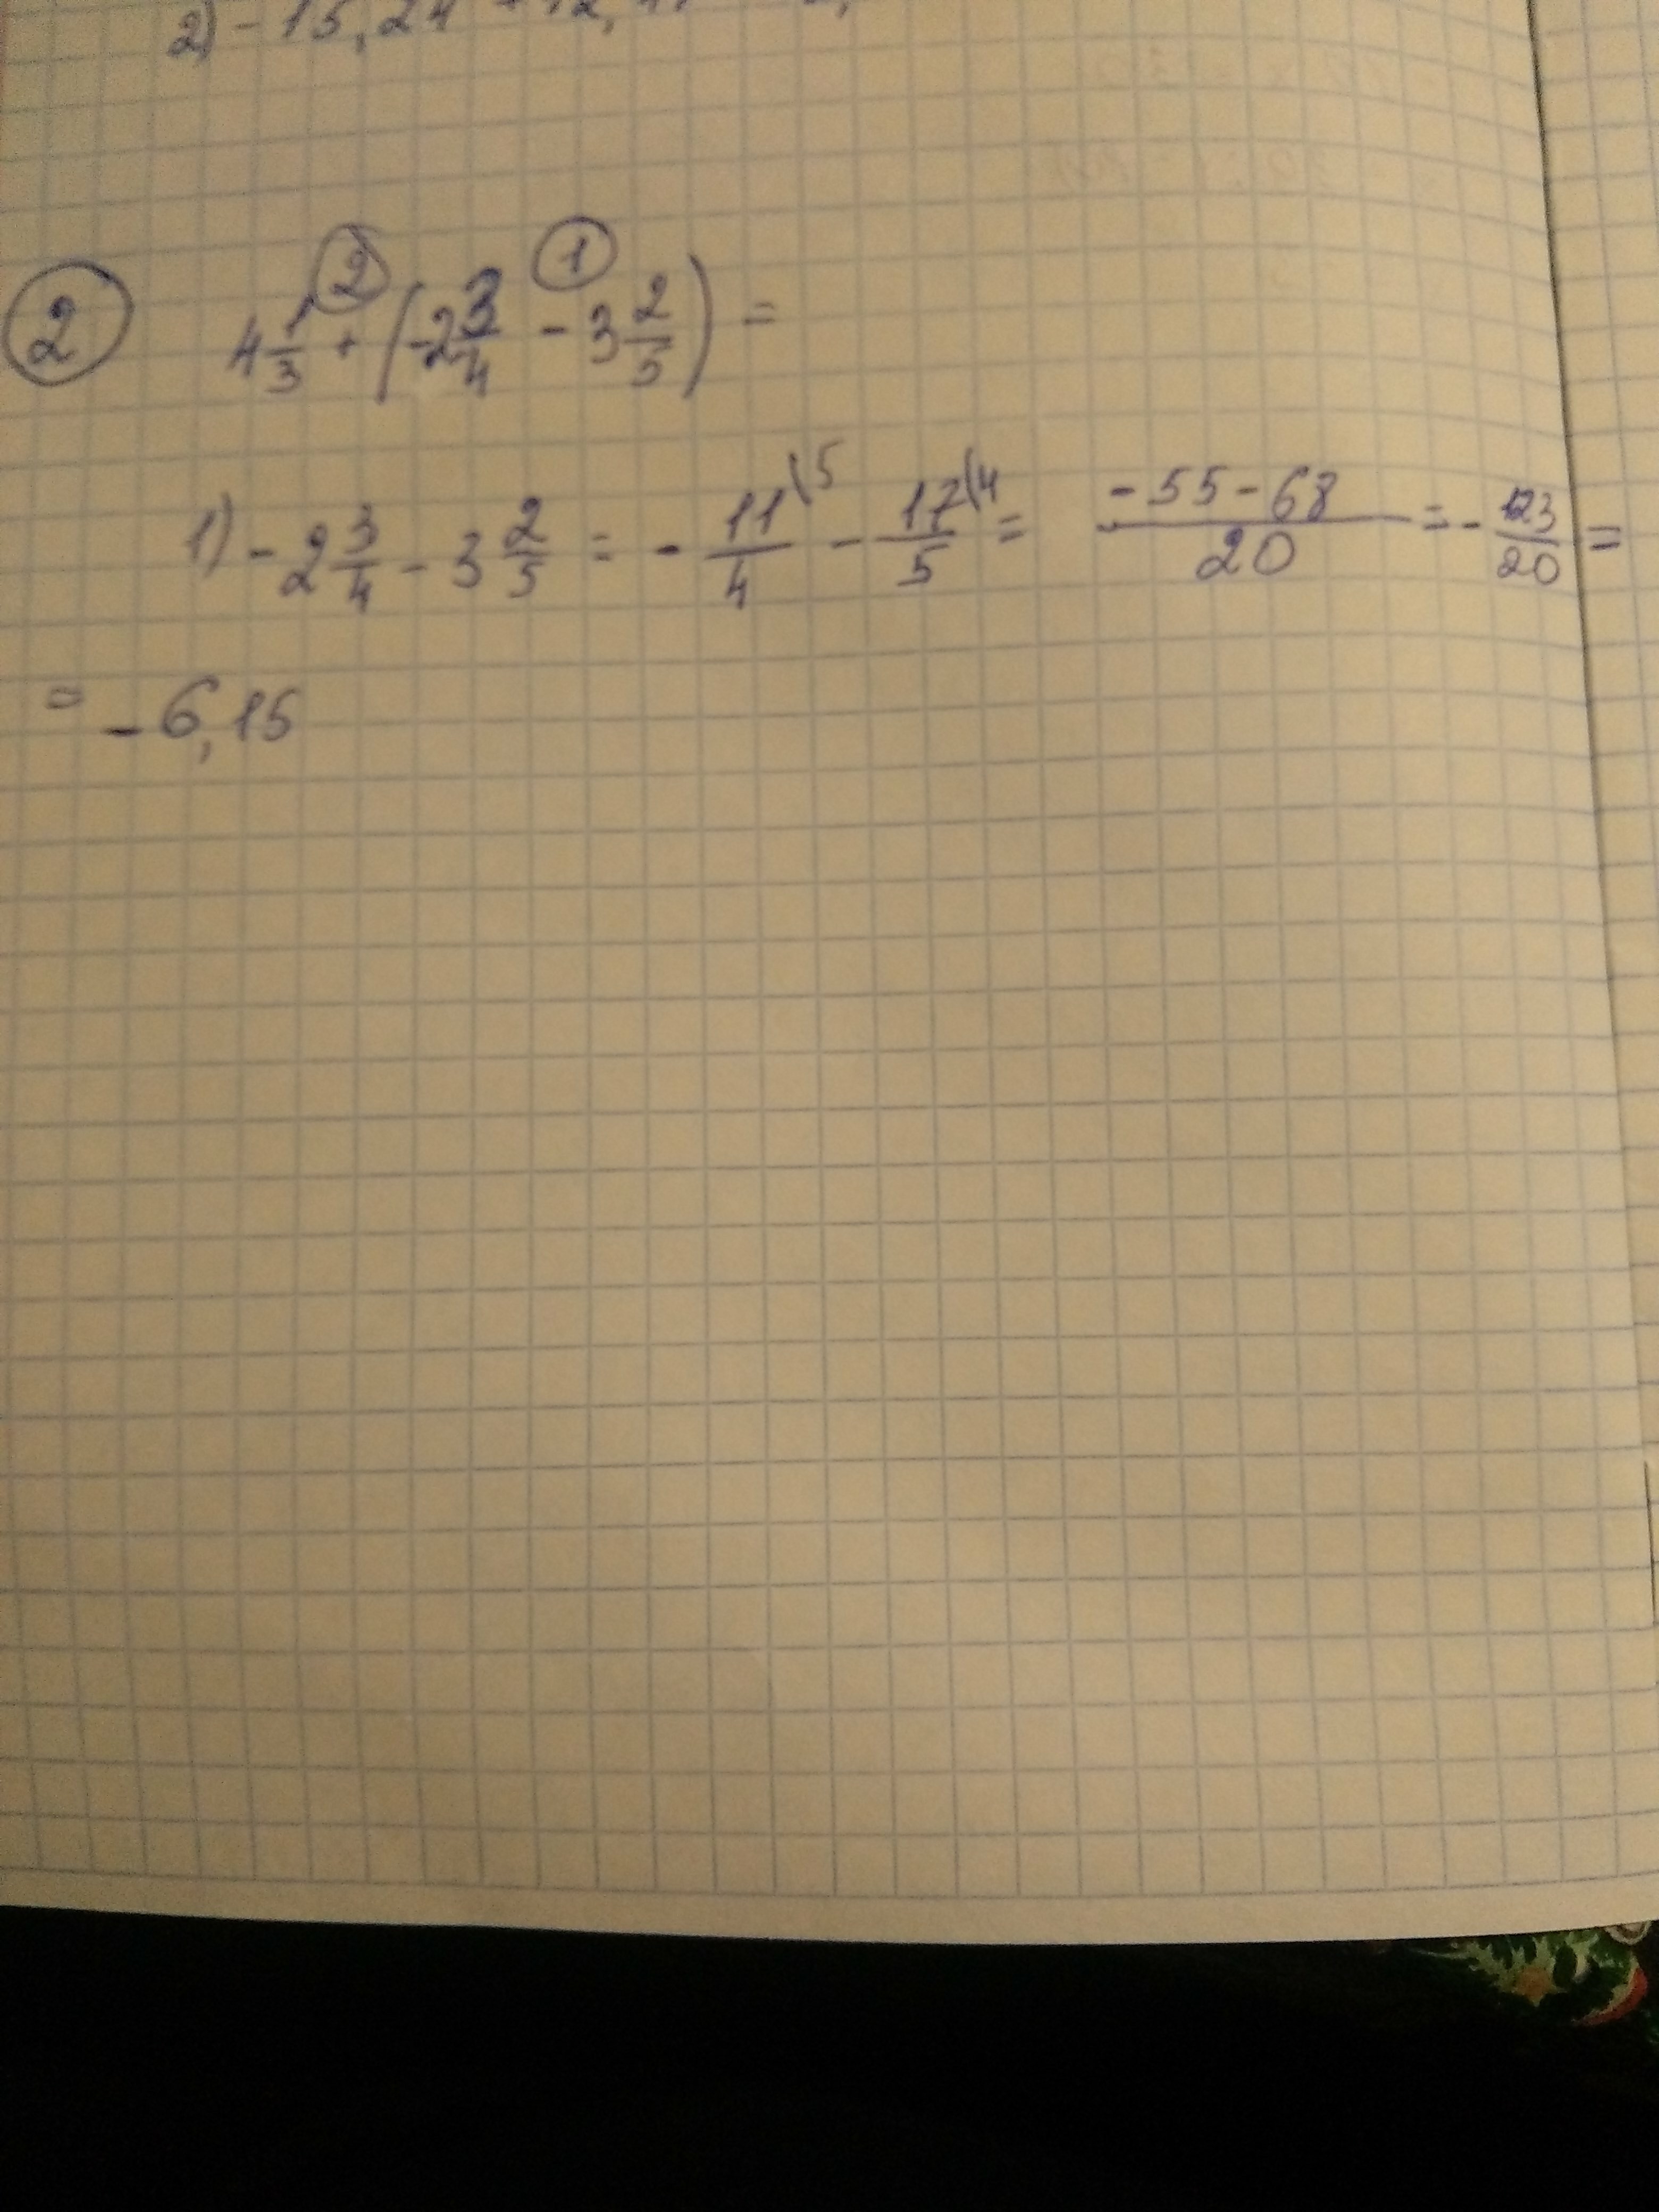 2) - 15,24 + 12,
② 4 1/3 ② + (-2 3/4 ① - 3 2/5) =
1) - 2 3/4 - 3 2/5 = - 11/4 \5 - 17/5 \4 = (-55-68)/20 = - 123/20 =
= - 6,15